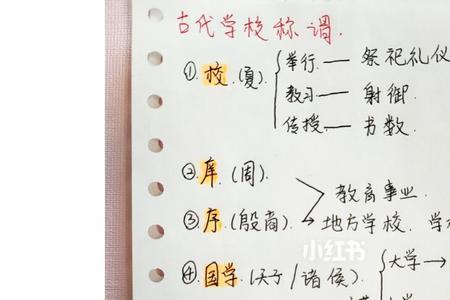 古代学校称谓.
举行 — 祭祀礼仪
①.校.(夏)
教习 — 射御
传授 — 书数
②.庠.(周)
教育事业.
③序(殷商) → 地方学校. 学
小红书
大学→
④国学(天子/诸侯).